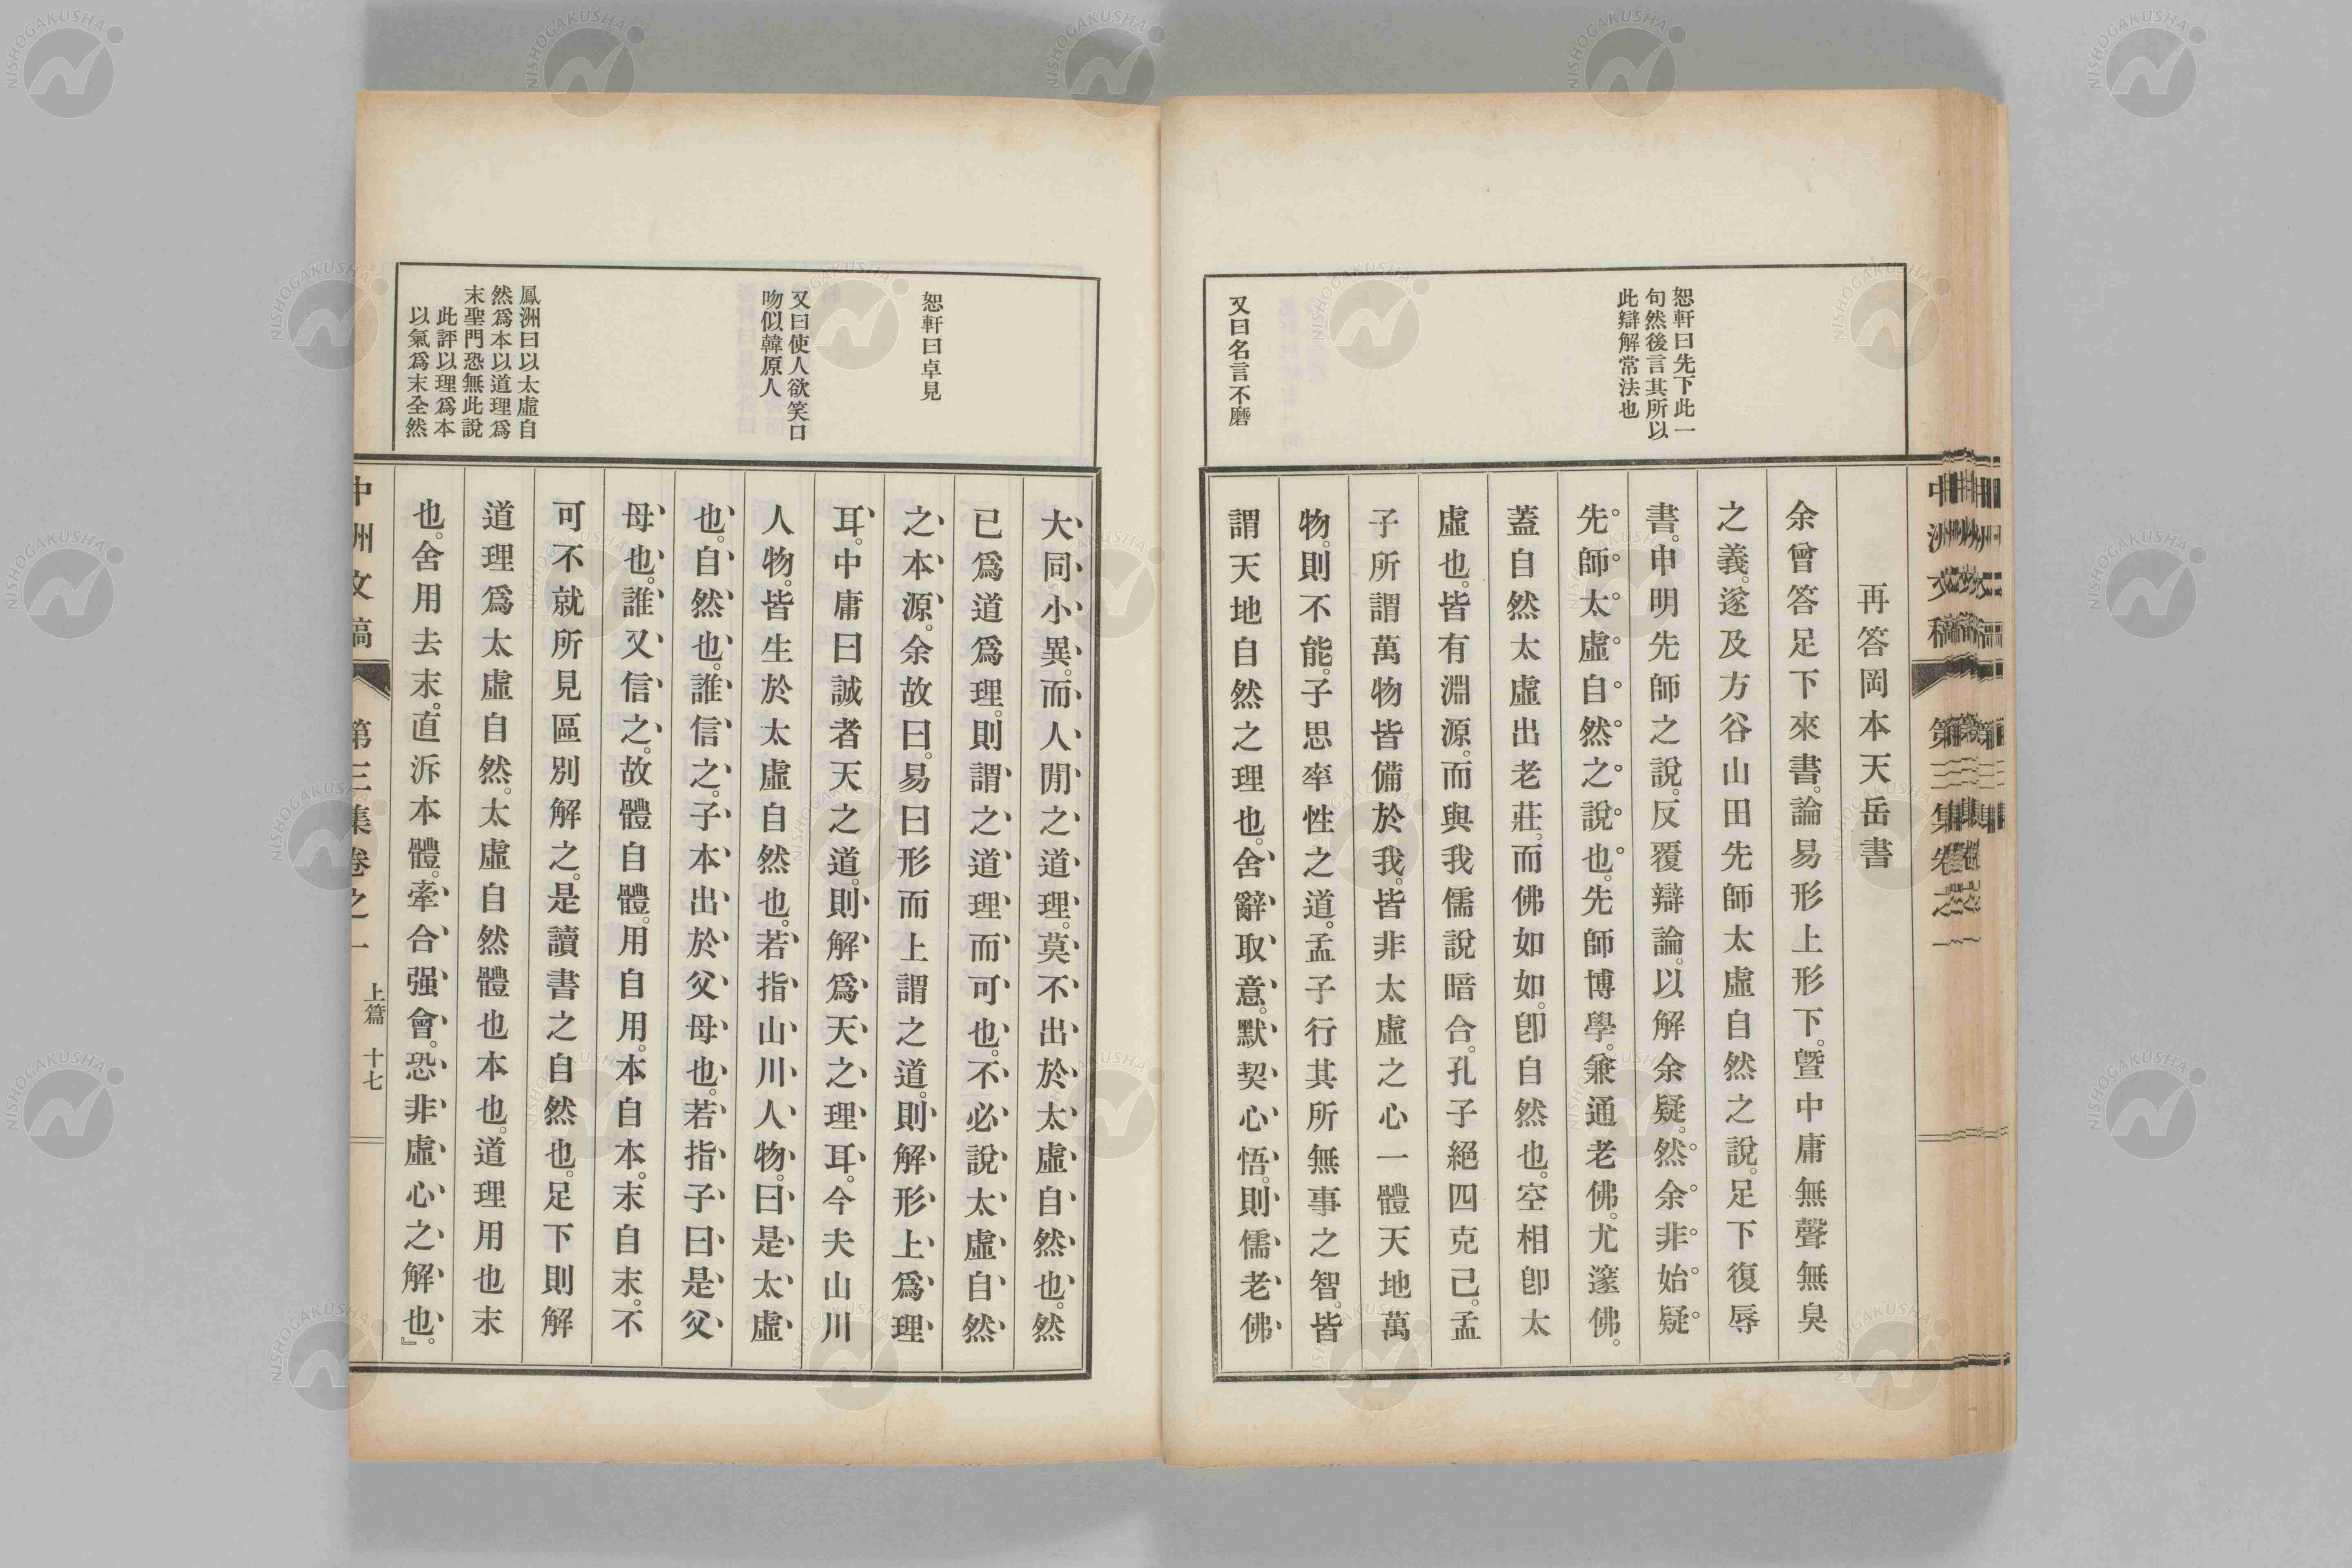 恕軒曰先下此一
句然後言其所以
此辯解常法也
又曰名言不磨
再答岡本天岳書
余曾答足下來書。論易形上形下。曁中庸無聲無臭
之義。遂及方谷山田先師太虛自然之說。足下復辱
書。申明先師之說。反覆辯論。以解余疑。然余非始疑
先師太虛自然之說也。先師博學。兼通老佛。尤邃佛。
蓋自然太虛出老莊。而佛如如。卽自然也。空相卽太
虛也。皆有淵源。而與我儒說暗合。孔子絕四克己。孟
子所謂萬物皆備於我。皆非太虛之心一體天地萬
物。則不能。子思率性之道。孟子行其所無事之智。皆
謂天地自然之理也。舍辭取意。默契心悟。則儒老佛
恕軒曰卓見
又曰使人欲笑口
吻似韓原人
鳳洲曰以太虛自
然爲本以道理爲
末聖門恐無此說
此評以理爲本
以氣爲末全然
大同小異。而人閒之道理。莫不出於太虛自然也。然
已爲道爲理。則謂之道理而可也。不必說太虛自然
之本源。余故曰。易曰形而上謂之道。則解形上爲理
耳。中庸曰誠者天之道。則解爲天之理耳。今夫山川
人物。皆生於太虛自然也。若指山川人物。曰是太虛
也。自然也。誰信之。子本出於父母也。若指子曰是父
母也。誰又信之。故體自體。用自用。本自本。末自末。不
可不就所見區別解之。是讀書之自然也。足下則解
道理爲太虛自然。太虛自然體也本也。道理用也末
也。舍用去末。直泝本體。牽合强會。恐非虛心之解也。』
中洲文稿 第三集卷之一 上篇 十七